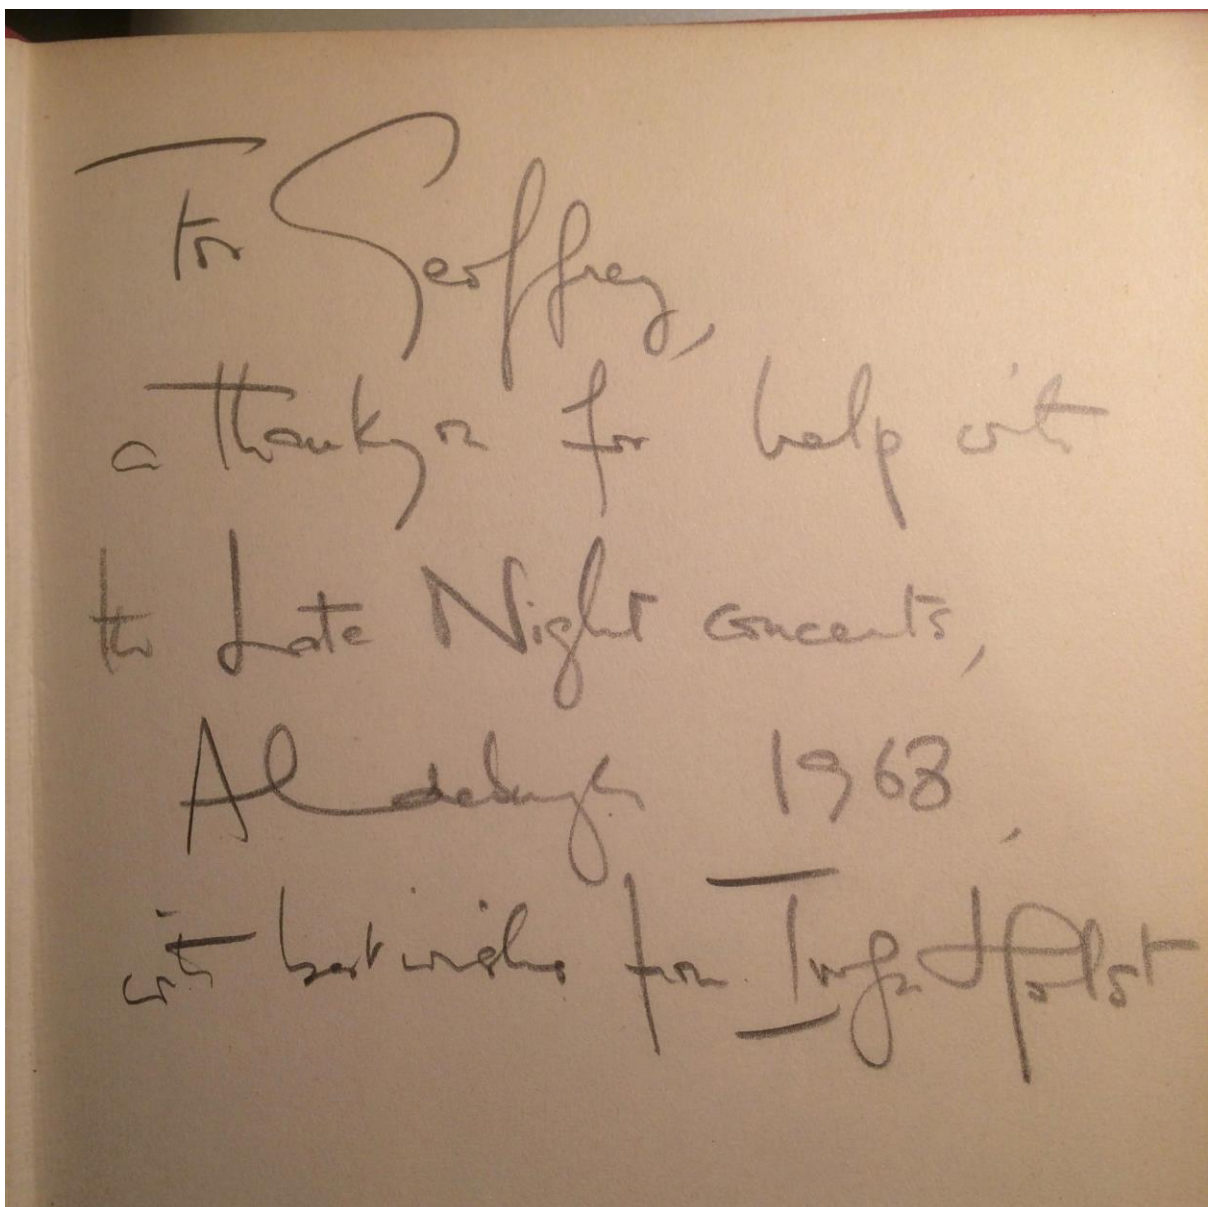 For Geoffrey,
a thankyou for help with
the Late Night concerts,
Aldeburgh 1968,
with best wishes from Imogen Holst